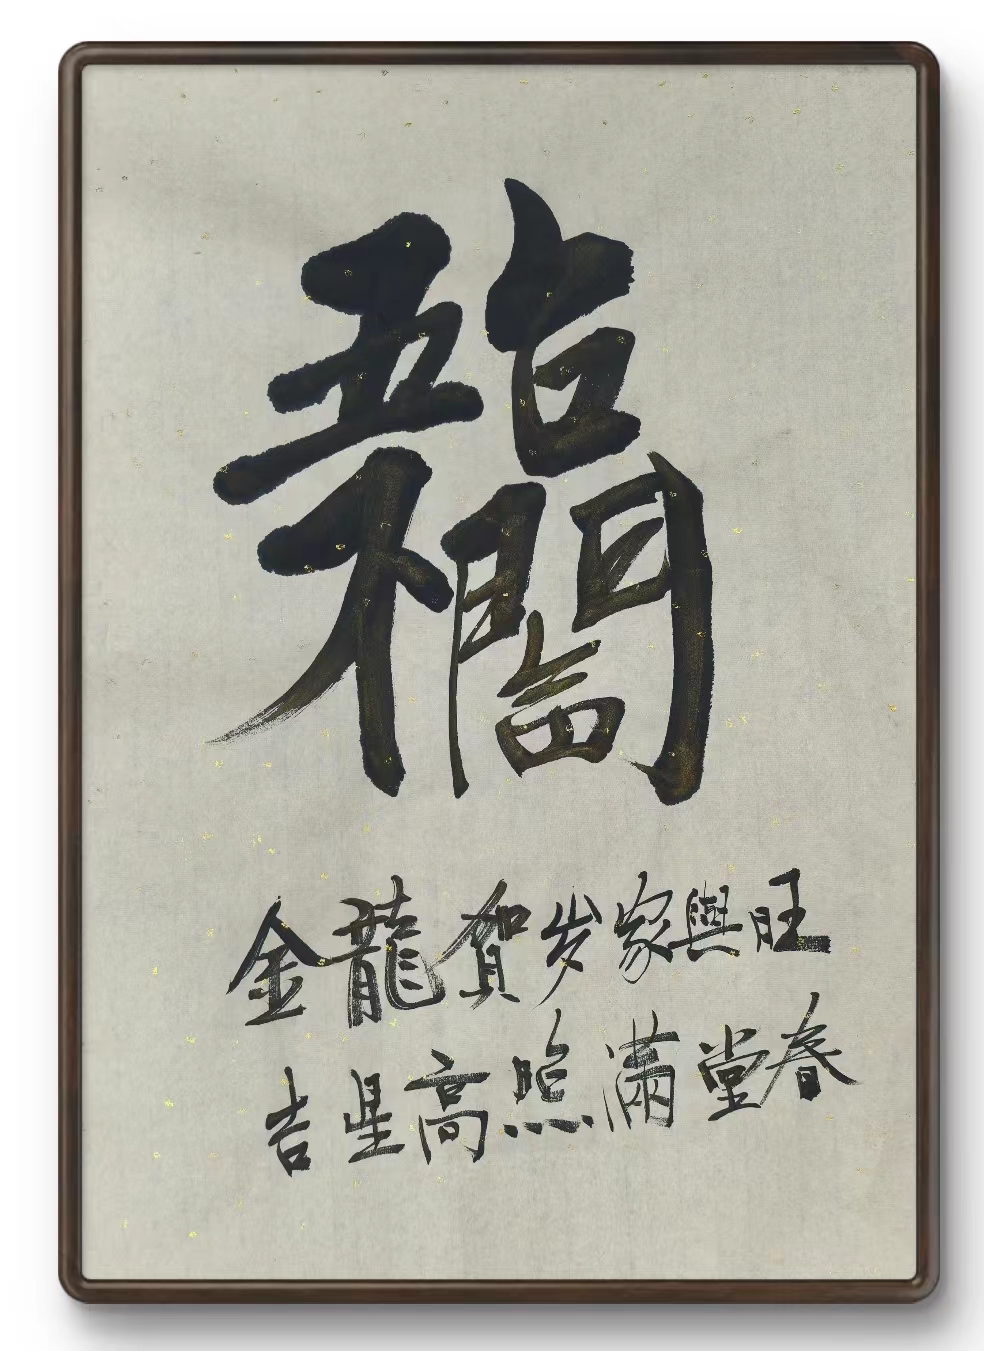 五福臨門
金龍賀岁家興旺
吉星高照滿堂春